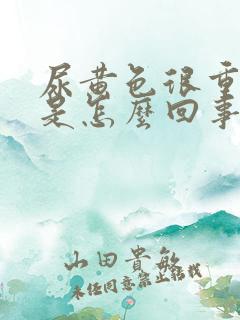 尿黄色很重
是怎麼回事
山田貴敏
未经同意禁止转载